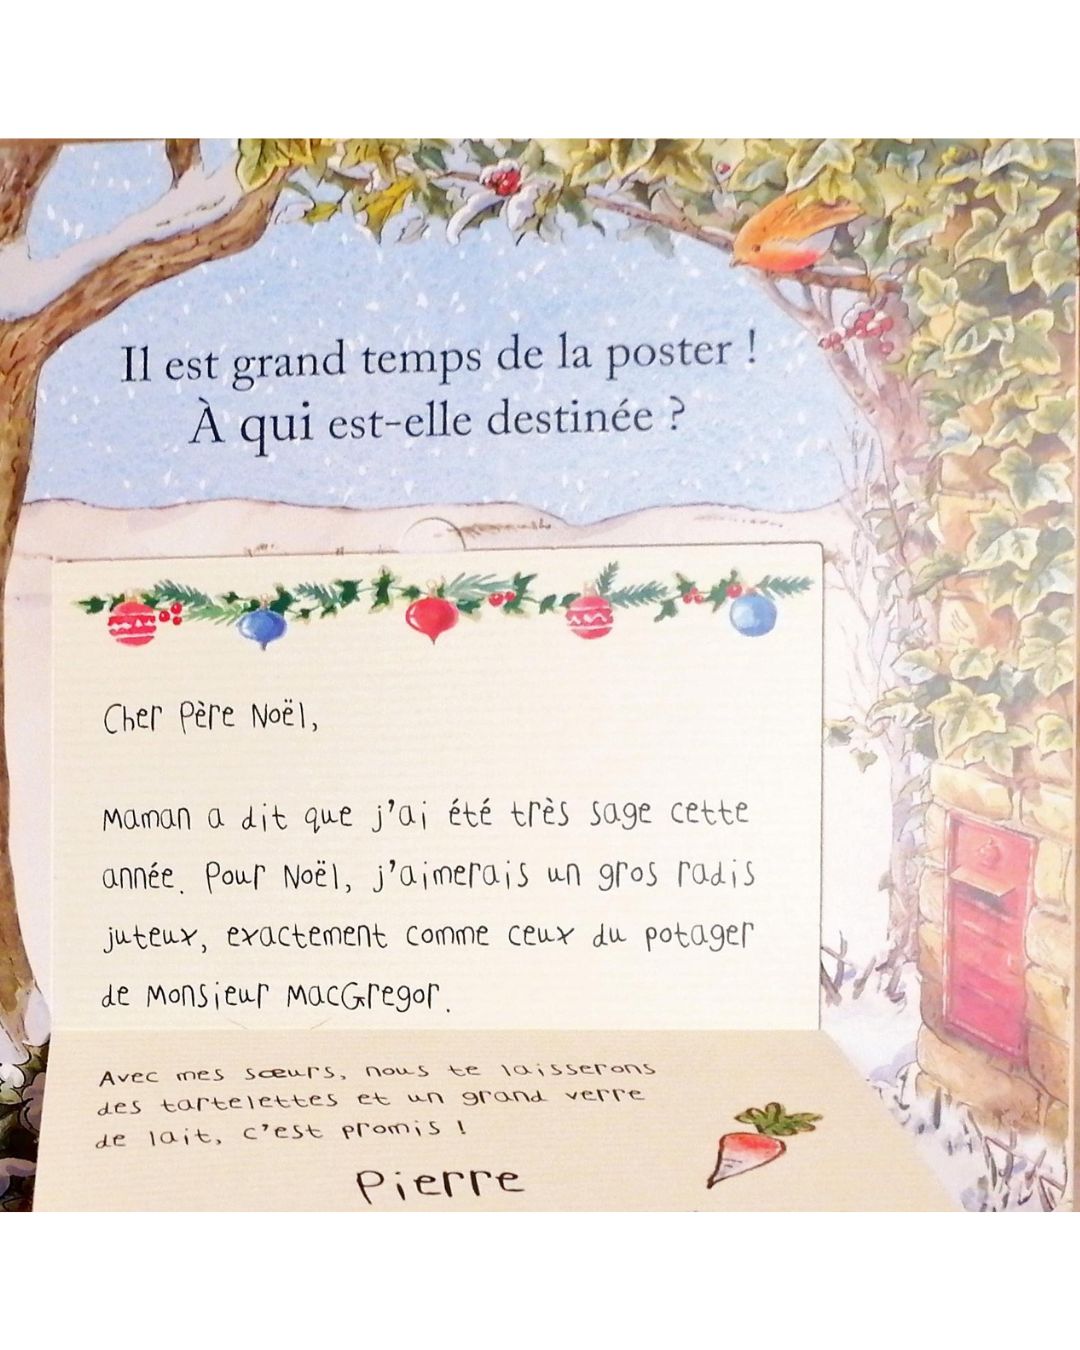 Il est grand temps de la poster !
À qui est-elle destinée ?
Cher Père Noël,
Maman a dit que j'ai été très sage cette
année. Pour Noël, j'aimerais un gros radis
juteux, exactement comme ceux du potager
de Monsieur MacGregor.
Avec mes sœurs, nous te laisserons
des tartelettes et un grand verre
de lait, c'est promis !
Pierre